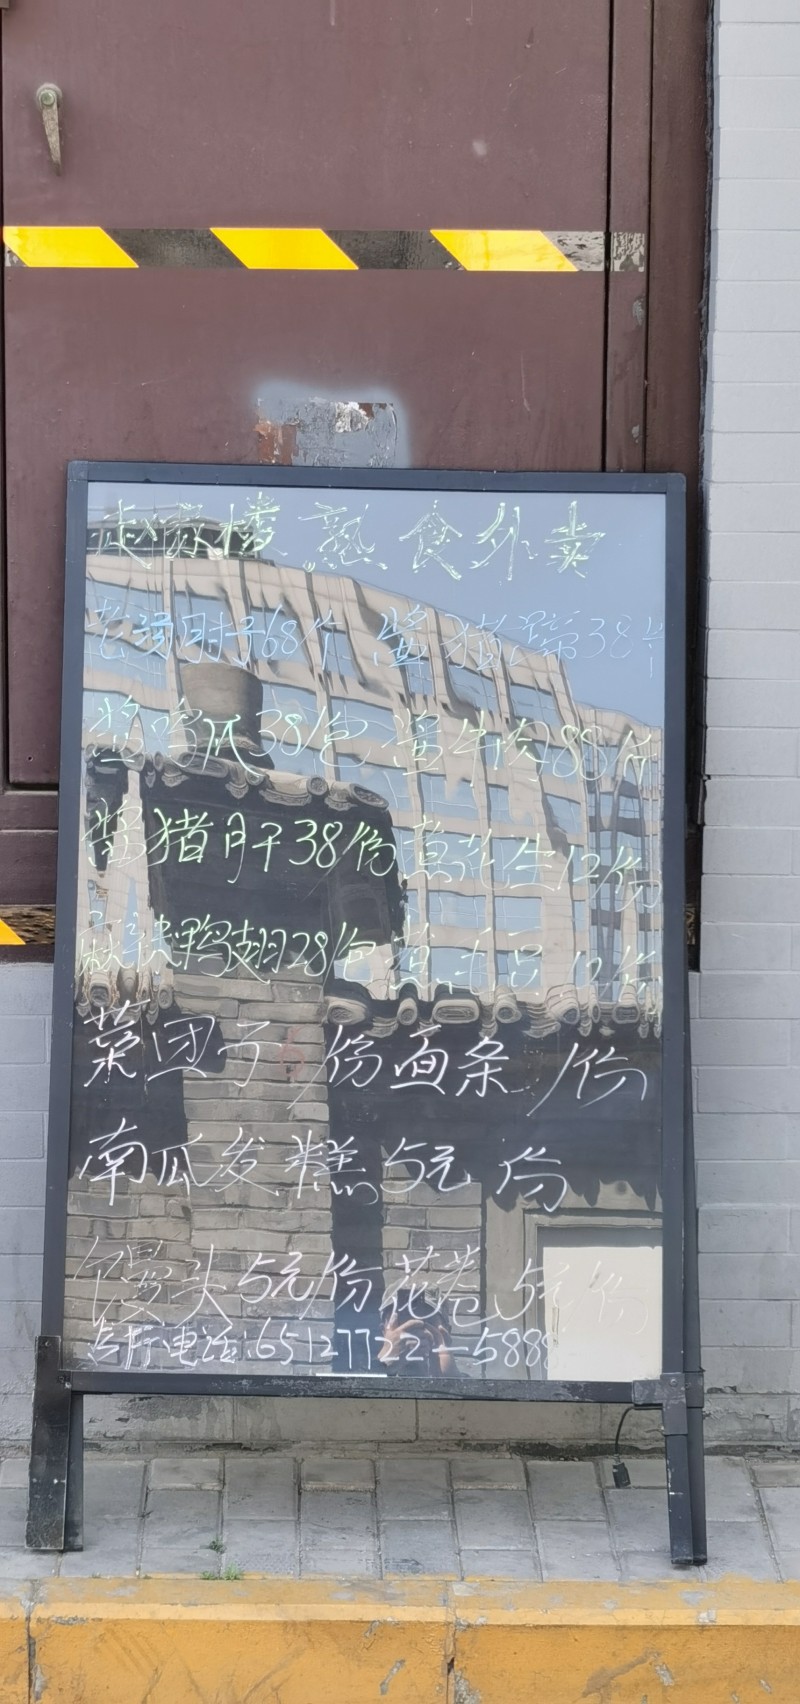 楼熟食外卖
老汤肘子68/个 酱猪蹄38/个
酱鸡爪38/包 酱牛肉88/份
酱猪肝38/份煮花生12/份
麻辣鸭翅28/包煮毛豆12/份
菜团子6/份面条 /份
南瓜发糕5元 份
馒头5元/份花卷5元/份
点厅电话:65127722-5888